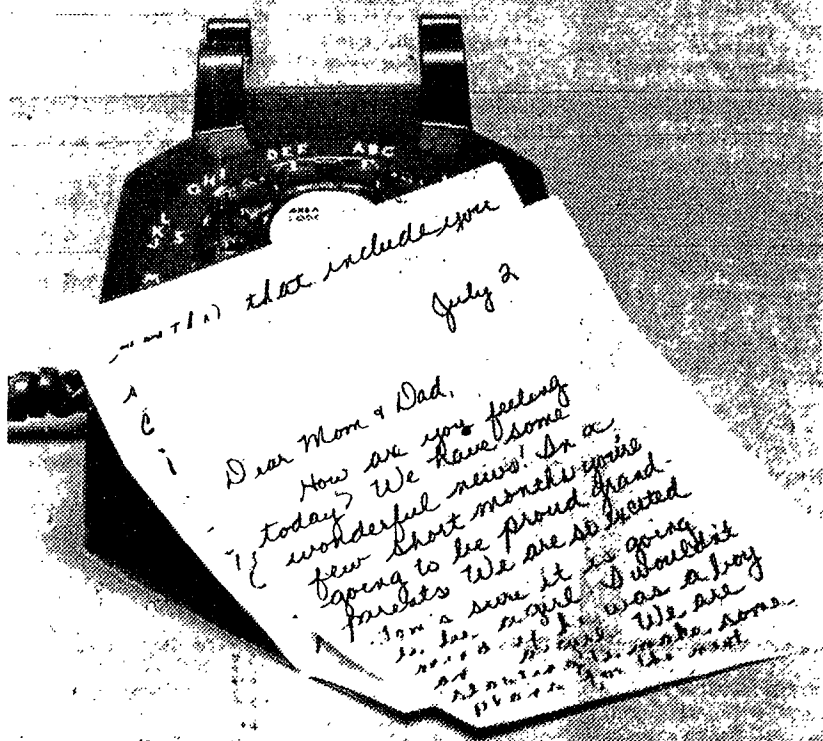 DEF ABC
GHI
AREA
CODE
that include you
July 2
Dear Mom & Dad,
How are you feeling
today? We have some
wonderful news! In a
few short months you're
going to be proud grand-
parents. We are so excited
Tom's sure it is going
to be a girl. I wouldn't
if he was a boy
We are
make some
the next